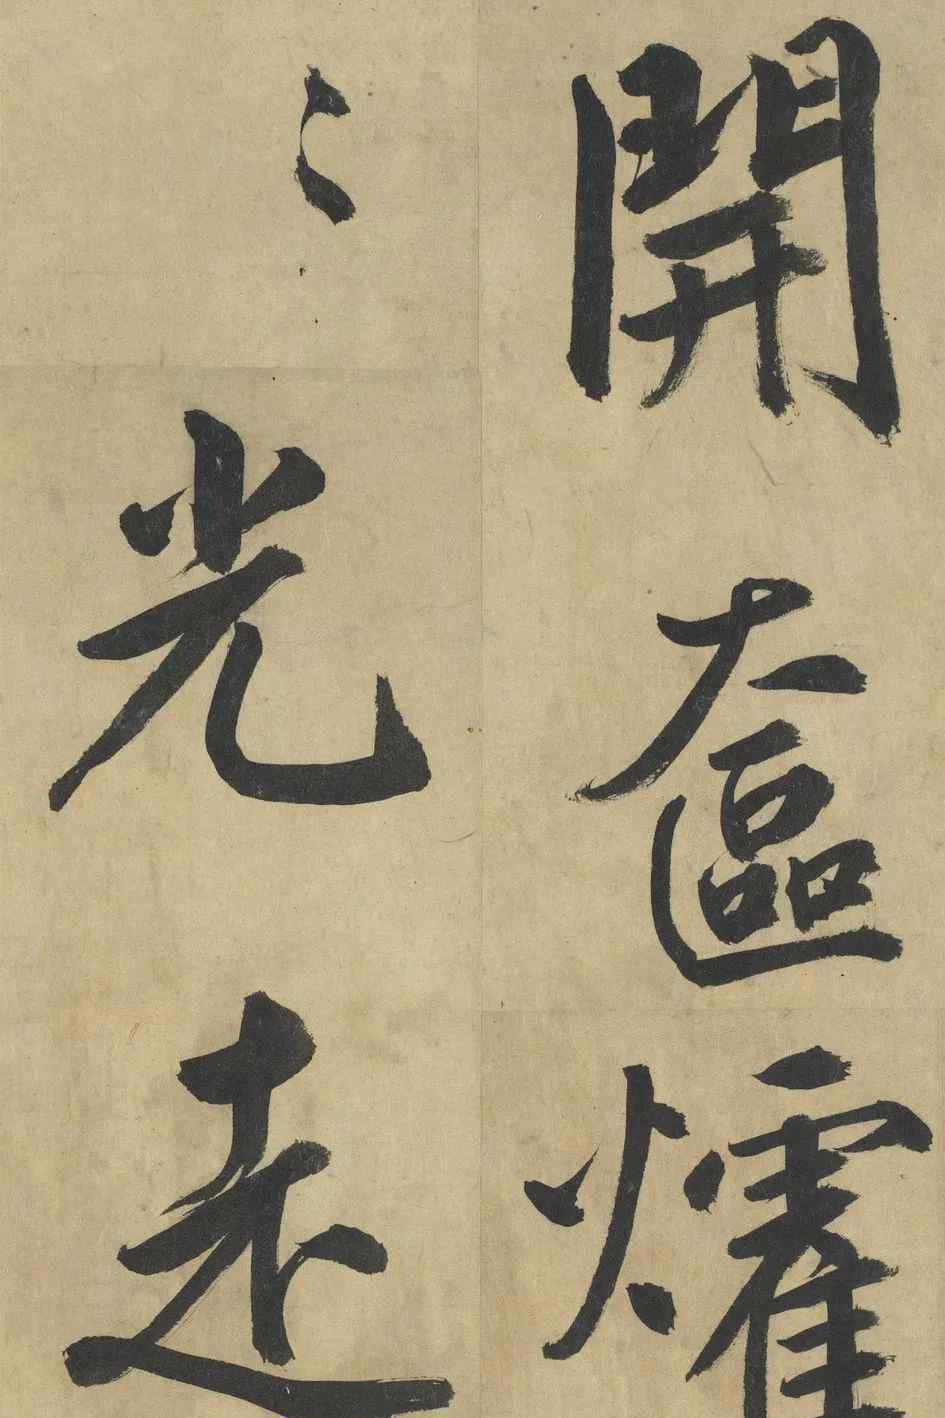 開奩㸌
〻光走